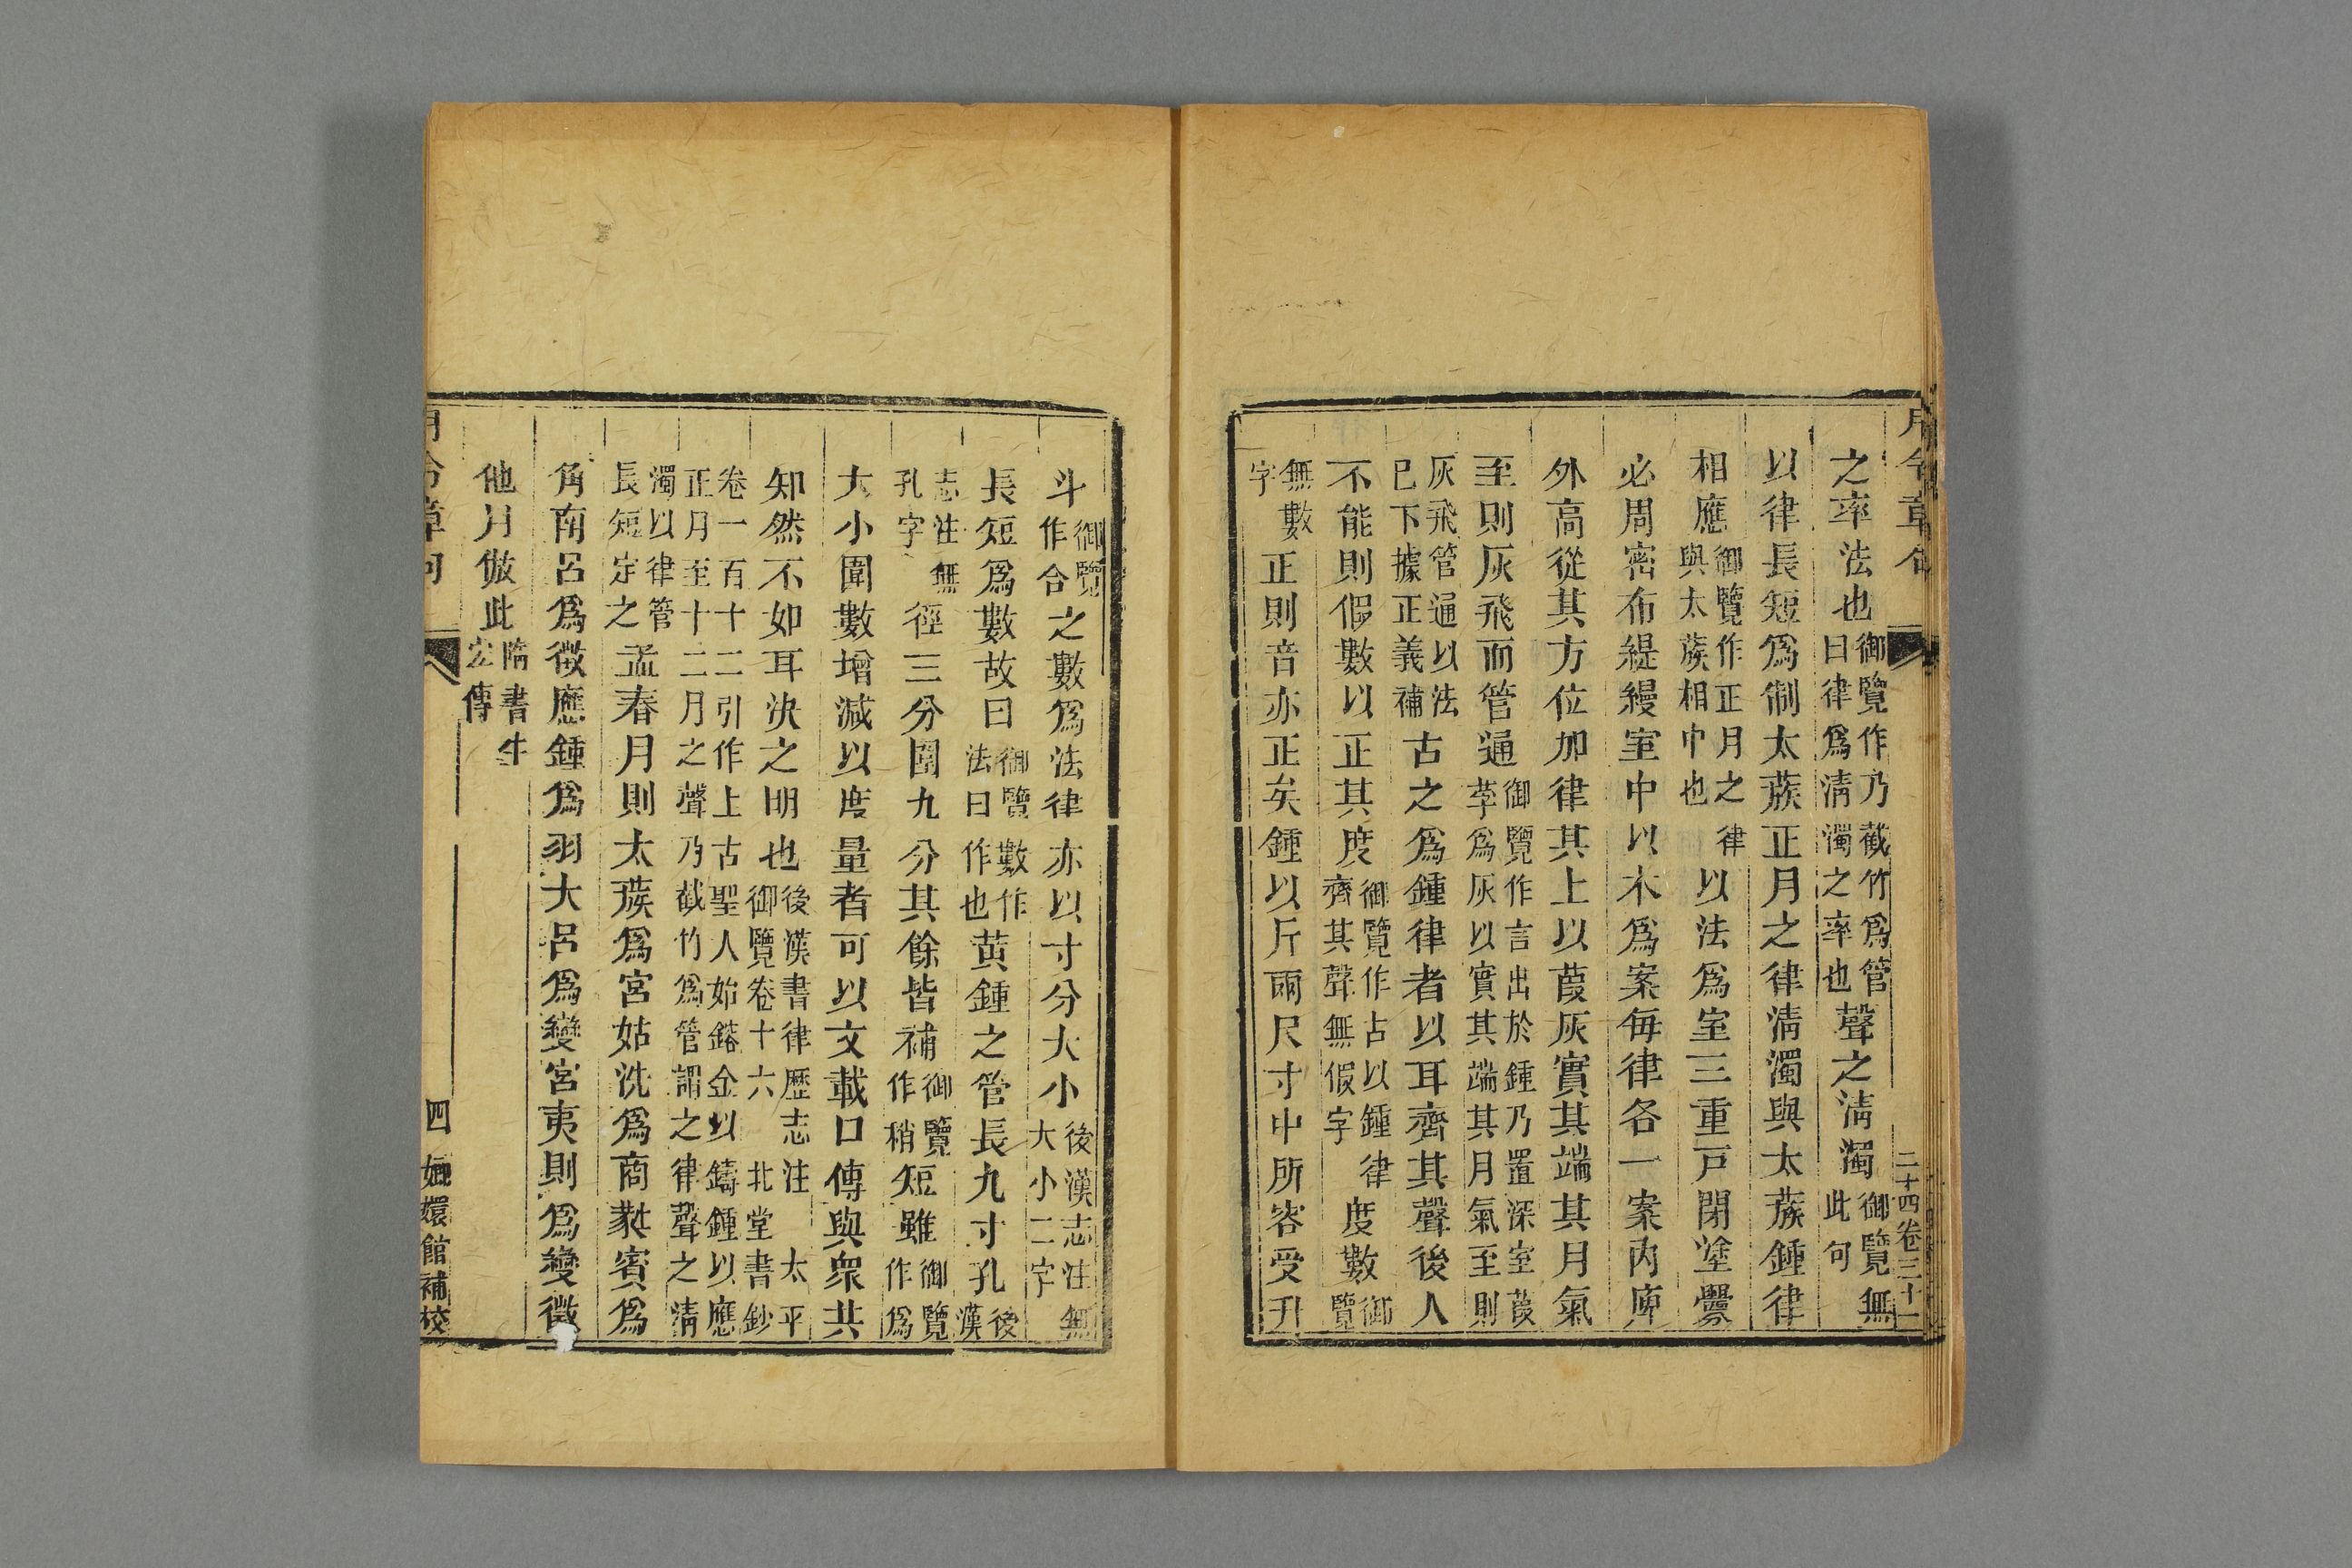 月令章句
二十四卷三十一
之率法也御覽作乃截竹為管曰律為清濁之率也聲之清濁御覽無此句
以律長短為制太蔟正月之律清濁與太蔟鍾律
相應御覽作正月之律與太蔟相中也以法為室三重戸閉塗釁
必周密布緹縵室中以木為案每律各一案內庳
外高從其方位加律其上以葭灰實其端其月氣
至則灰飛而管通御覽作言出於鍾乃置深室葭莩為灰以實其端其月氣至則
灰飛管通以法已下據正義補古之為鍾律者以耳齊其聲後人
不能則假數以正其度御覽作古以鍾律齊其聲無假字度數御覽
無數字正則音亦正矣鍾以斤兩尺寸中所容受升
斗御覽作合之數為法律亦以寸分大小後漢志注無大小二字
長短為數故曰御覽數作法曰作也黃鍾之管長九寸孔後漢
志注無孔字徑三分圍九分其餘皆補御覽作稍短雖御覽作為
大小圍數增減以度量者可以文載口傳與衆共
知然不如耳決之明也後漢書律歷志注太平御覽卷十六北堂書鈔
卷一百十二引作上古聖人始鎔金以鑄鍾以應正月至十二月之聲乃截竹為管謂之律聲之清
濁以律管長短定之孟春月則太蔟為宮姑洗為商蕤賓為
角南呂為徵應鍾為羽大呂為變宮夷則為變徵
他月倣此隋書牛宏傳
月令章句
四
嫏嬛館補校